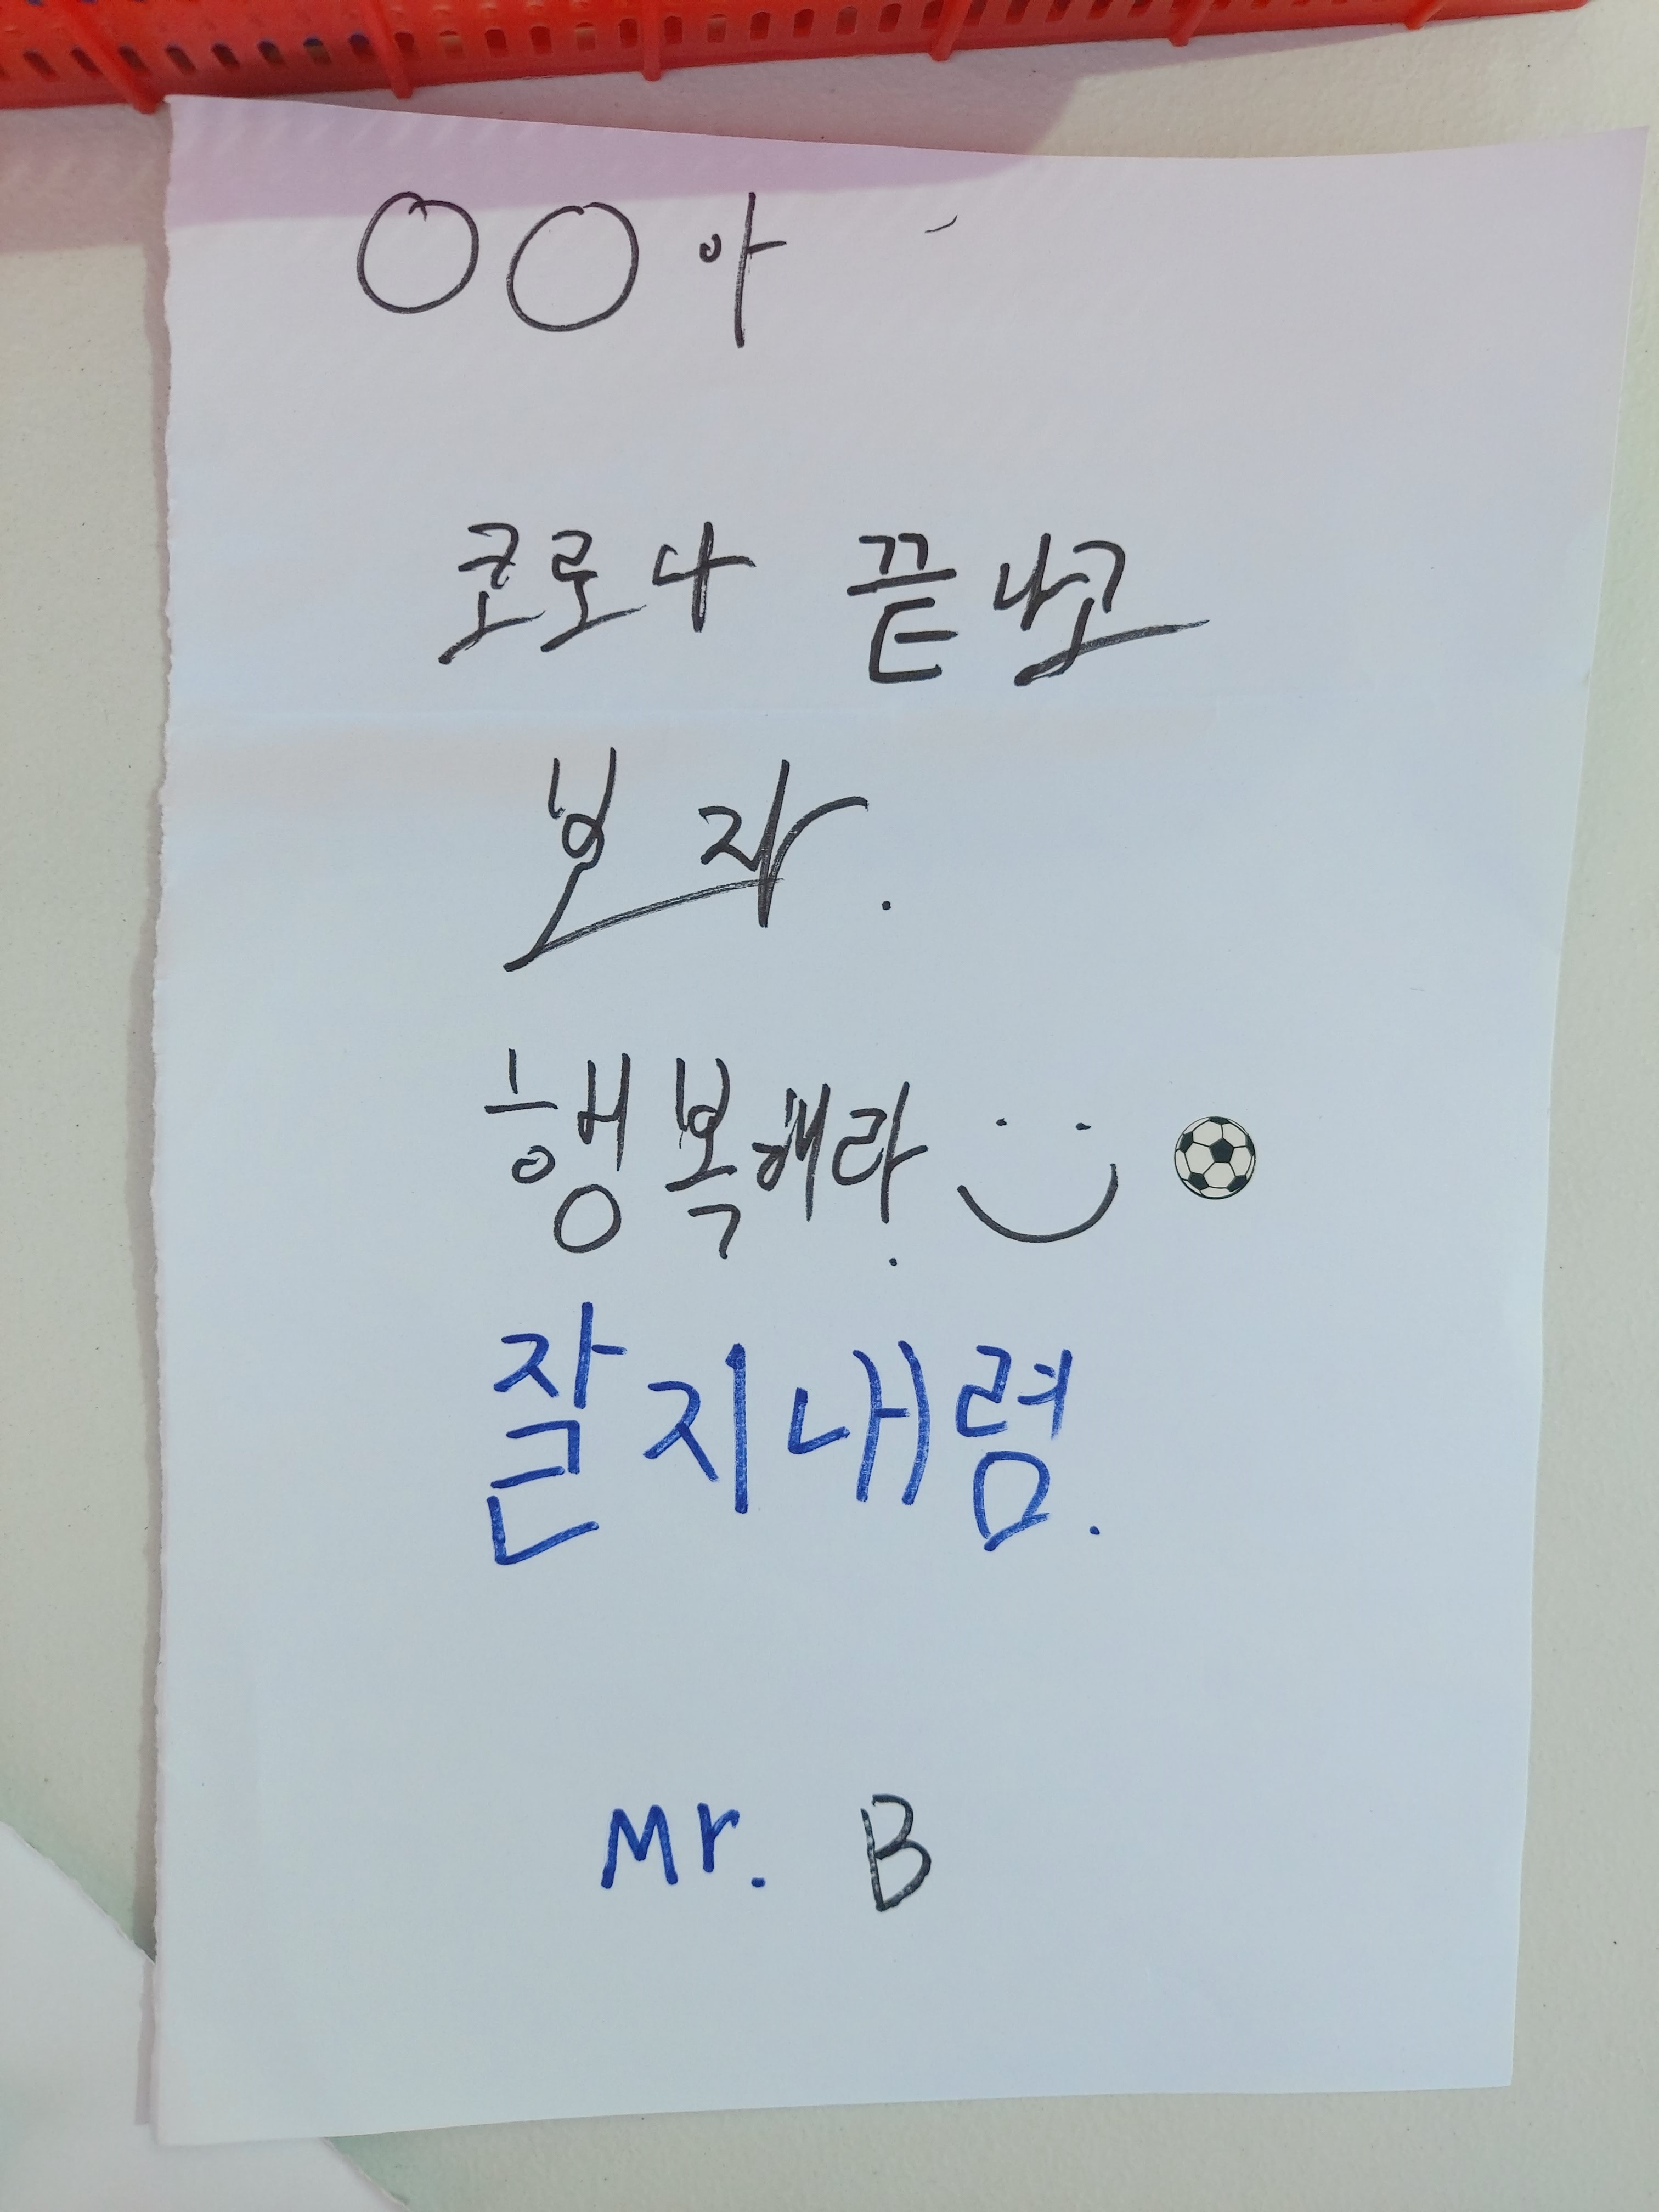 OO아
코로나 끝나고
보자.
행복해라.
잘지내렴.
Mr. B